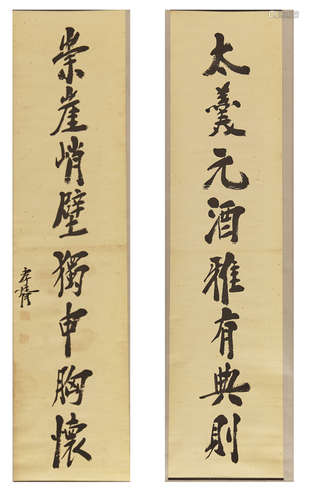 太羹元酒雅有典則
崇崖峭壁獨申胸懷
孝胥